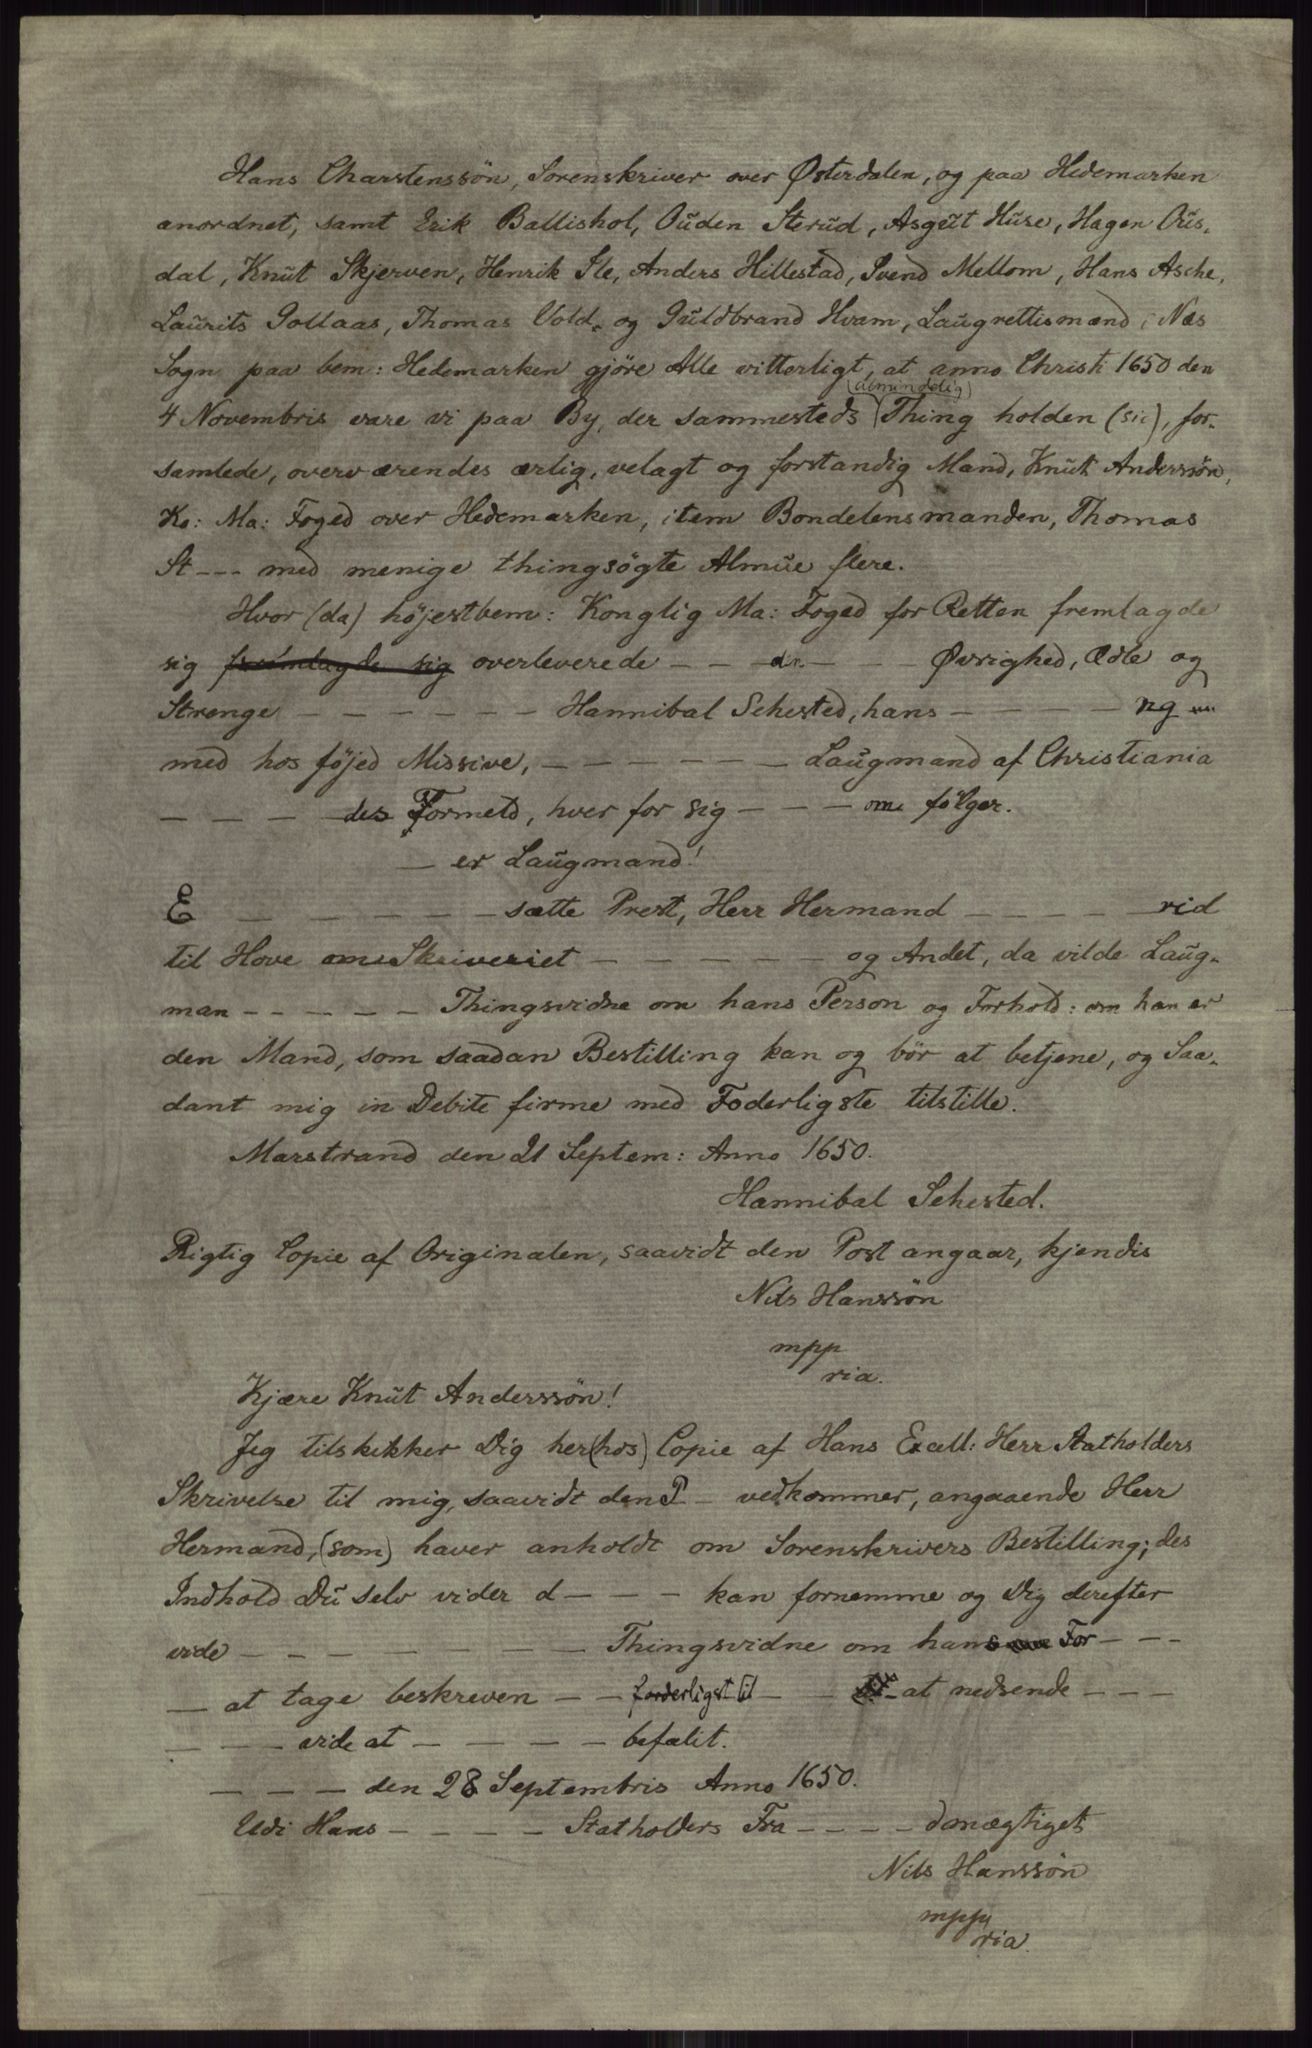 Hans Charstenssön, Sorenskriver over Østerdalen, og paa Hedemarken
anordnet, samt Erik Ballishol, Oŭden Sterŭd, Asgŭt Hŭse, Hagen Oŭs-
dal, Knŭt Skjerven, Henrik Ile, Anders Hillestad, Svend Mellom, Hans Asche,
Laŭrits Gollaas, Thomas Vold, og Gŭldbrand Hvam, Laŭgrettismænd i Næs
Sogn paa bem: Hedemarken gjöre Alle vitterligt, at anno Christi 1650 den
(almindelig)
4 Novembris vare vi paa By, der sammesteds Thing holden (sic), for-
samlede, overværendes ærlig, velagt og forstandig Mand, Knŭt Anderssön,
Ko: Ma: Foged over Hedemarken, item Bondelensmanden, Thomas
St --- med menige thingsögte Almŭe flere.
Hvor (da) höjestbem: Konglig Ma: Foged for Retten fremlagde
sig fremlagde sig overleverede — — den — — Øvrighed, Ædle og
Strenge — — — — — — Hannibal Sehested, hans — — — — ng
med hos föjed Missive, — — — — — — Laŭgmand af Christiania
— — — — des Formeld, hver for sig — — — om følger.
— er Laŭgmand!
E — — — — — — sætte Prest, Herr Hermand — — — — rid
til Hove om Skriveriet — — — — — og Andet, da vilde Laŭg-
man — — — — — Thingsvidne om hans Person og Forhold: om han er
den Mand, som saadan Bestilling kan og bör at betjene, og Saa-
dant mig in Debite firme med Foderligste tilstille.
Marstrand den 21 Septem: Anno 1650.
Hannibal Sehested.
Rigtig Copie af Originalen, saavidt den Post angaar, kjendis
Nils Hanssön
mpp
ria.
Kjære Knŭt Anderssön!
Jeg tilskikker Dig her(hos) Copie af Hans Excell: Herr Statholders
Skrivelse til mig, saavidt den P — vedkommer, angaaende Herr
Hermand, (som) haver anholdt om Sorenskrivers Bestilling; des
Indhold Dŭ selv vider d — — — kan fornemme og Dig derefter
vide — — — — — — — Thingsvidne om hans For — — —
— at tage beskreven — — forderligst til — — at nedsende — — —
— — — vide at — — — — — befalit.
— — — den 28 Septembris Anno 1650.
Udi Hans — — — — Statholders Fra — — — — dmægtiget
Nils Hanssön
mpp
ria.